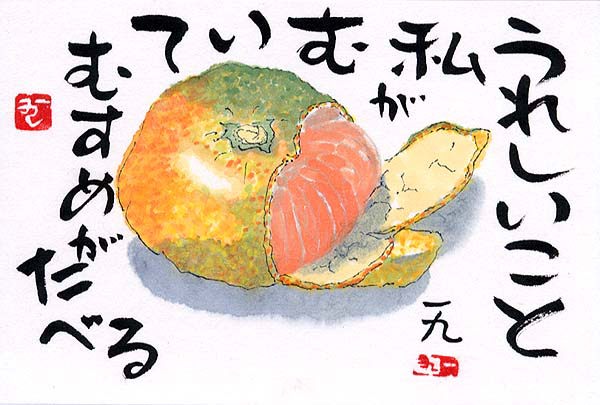 うれしいこと
私が
むいて
むすめが
たべる
一九